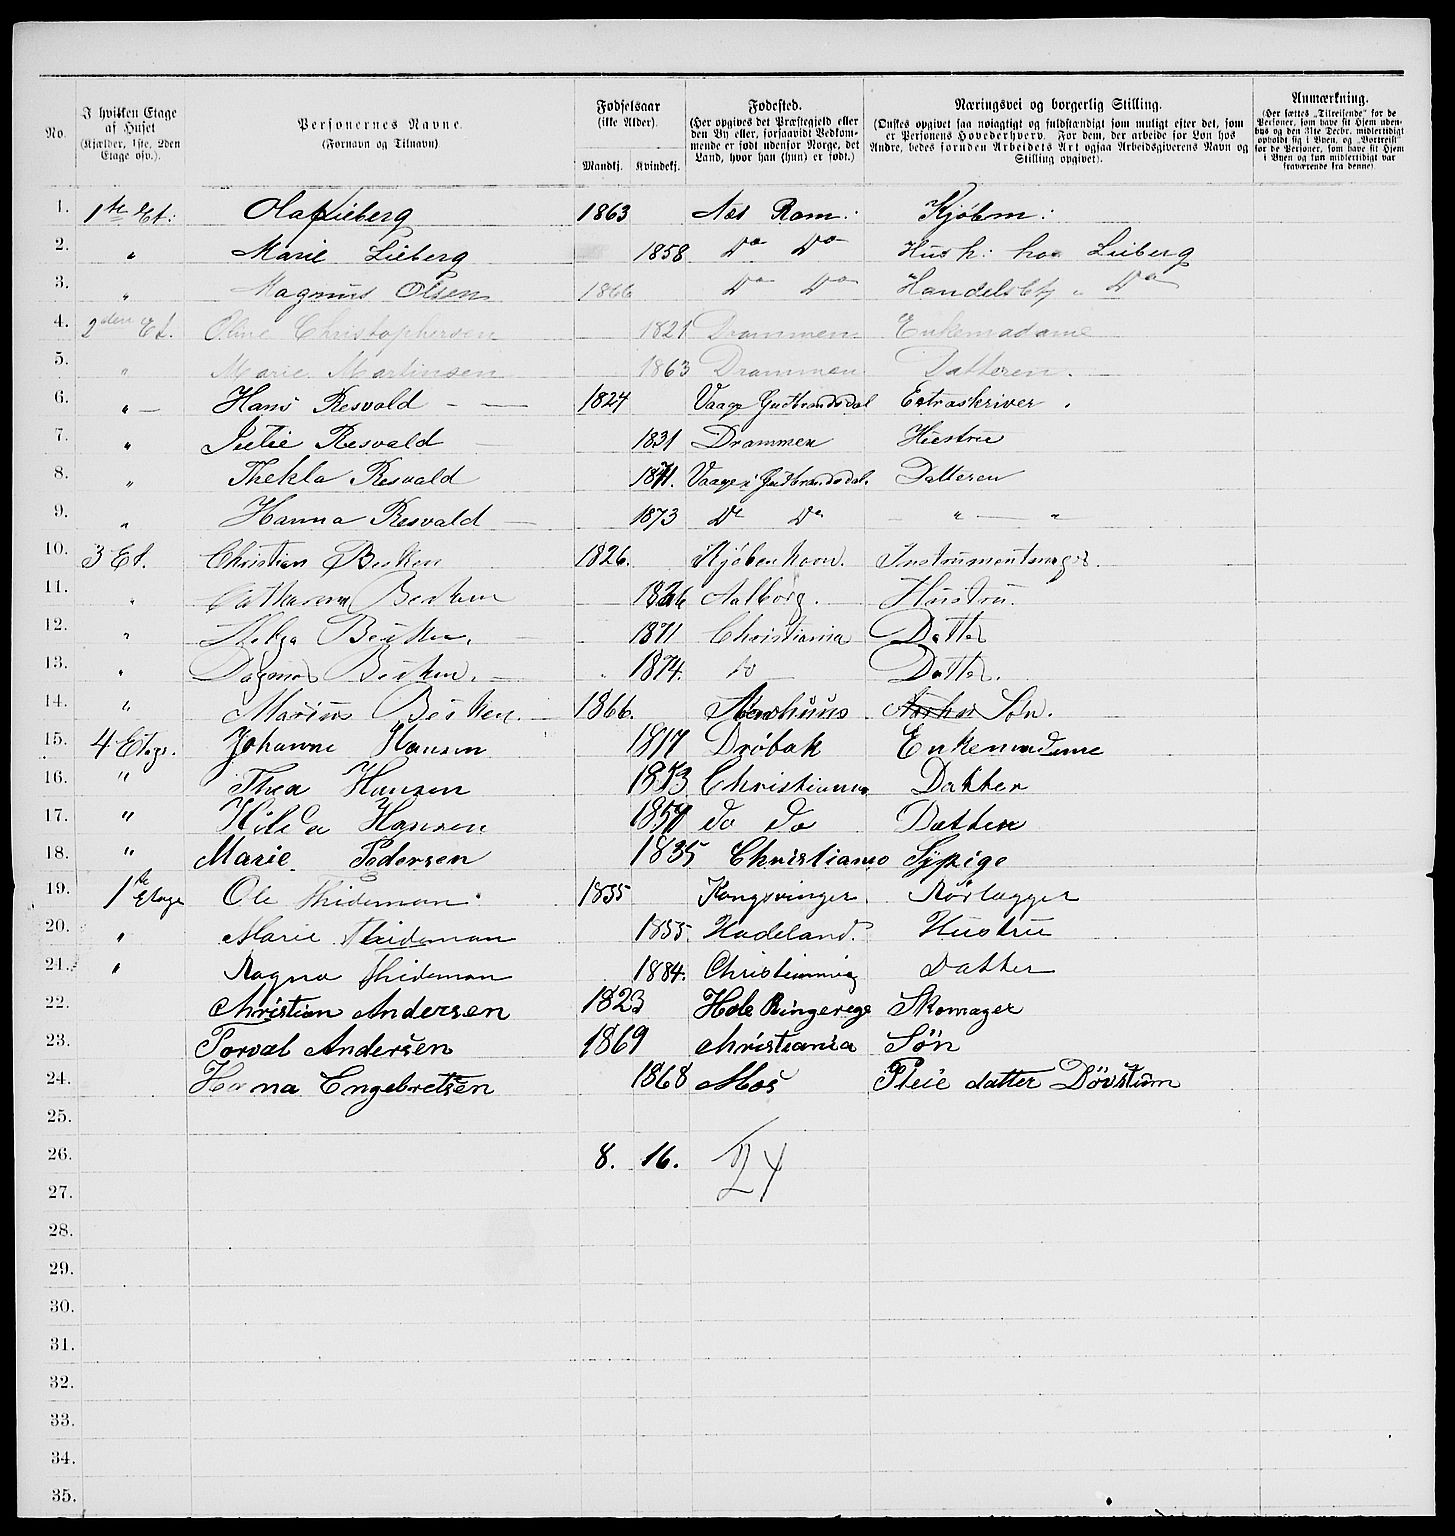 No. I hvilken Etage af Huset (Kjælder, 1ste, 2den Etage osv.). Personernes Navne. (Fornavn og Tilnavn) Fødselsaar (ikke Alder). Mandkj. Kvindekj. Fødested. (Her opgives det Præstegjeld eller den By eller, forsaavidt Vedkommende er født udenfor Norge, det Land, hvor han (hun) er født.) Næringsvei og borgerlig Stilling. (Ønskes opgivet saa nøiagtigt og fuldstændigt som muligt efter det, som er Personens Hovederhverv. For dem, der arbeide for Løn hos Andre, bedes foruden Arbeidets Art ogsaa Arbeidsgiverens Navn og Stilling opgivet). Anmærkning. (Her sættes „Tilreisende“ for de Personer, som have sit Hjem udenbys og den 31te Decbr. midlertidigt opholdt sig i Byen, og „Bortreist“ for de Personer, som have sit Hjem i Byen og kun midlertidigt var fraværende fra denne).
1. 1ste Et: Olaf Lieberg 1863 Næs Rom: Kjøbm:
2. " Marie Lieberg 1858 Do Do Hush: hos Lieberg
3. " Magnus Olsen 1866 Do Do Handelsbtj " Do
4. 2den Et. Oline Christophersen 1821 Drammen Enkemadame
5. " Marie Martinsen 1863 Drammen Datteren.
6. " — Hans Resvold — — 1824 Vaage Gudbrandsdal Extraskriver.
7. " Julie Resvald — 1831 Drammen Hustru
8. " Thekla Resvald 1871. Vaage i Gudbrandsdal. Datteren
9. " Hanna Resvald — 1873 Do Do — " — "
10. 3 Et. Christian Besken 1826. Kjøbenhavn. Instrumentmager.
11. " Catharina Besken 1826 Aalborg. Hustru.
12. " Helga Besken. 1871 Christiania Datter
13. " Dagmar Besken. — 1874. do — Datter.
14. " Marius Besken. — 1866. Aarhuus Søn.
15. 4 Etage. Johanne Hansen 1817 Drøbak Enkemadame
16. " Thea Hansen 1853 Christiania Datter
17. " Hilda Hansen 1859 do do Datter
18. " Marie Pedersen 1835 Christiania Sypige
19. 1ste Etage Ole Thideman 1855 Kongsvinger Rørlægger
20. " Marie Thideman 1855. Hadeland. Hustru
21. " Ragna Thideman 1884. Christiania Datter
22. Christian Andersen 1823 Hole Ringerege Skomager
23. Torval Andersen 1869 Christiania Søn
24. Hanna Engebretsen 1868 Mos Pleie datter Døvstum
25.
26. 8. 16. 24
27.
28.
29.
30.
31.
32.
33.
34.
35.